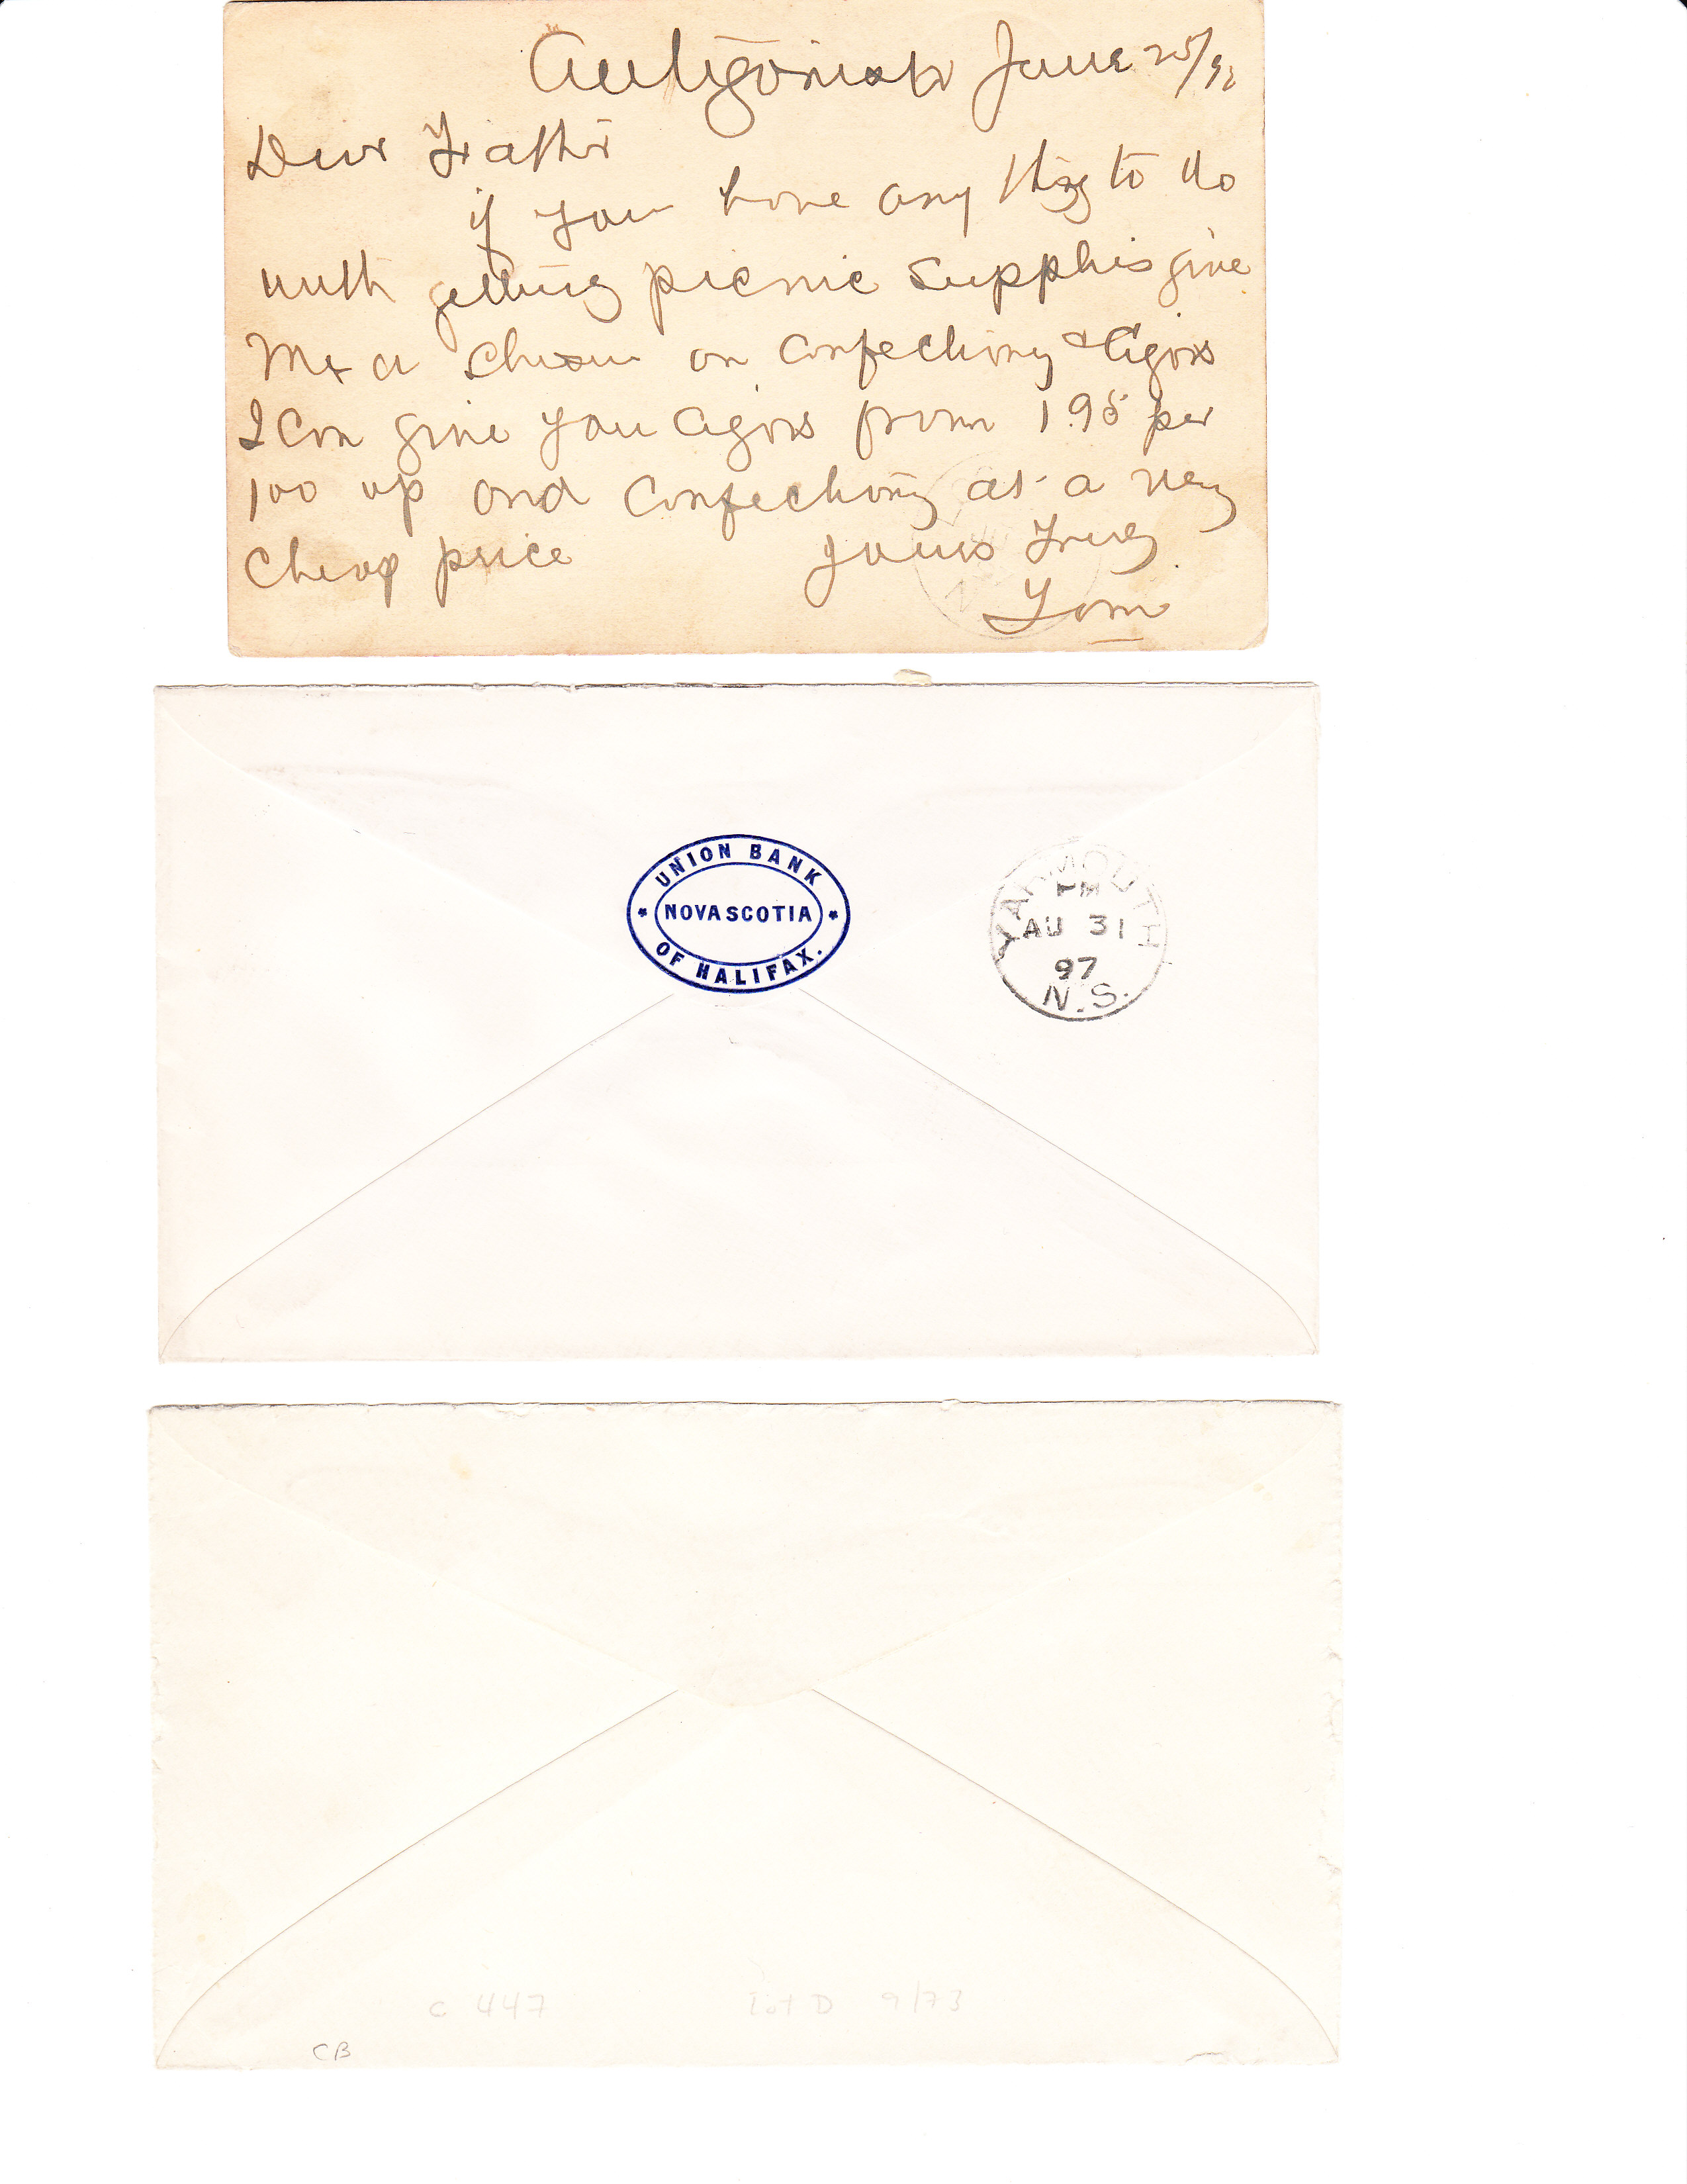 Antigonish June 25/92
Dear Father
if you have any thing to do
with getting picnic supplies give
Me a Chance on Confectiony & Cigars
I Can give you Cigars from 1.95 per
100 up and Confectiony at a very
Cheap price yours Truly
Tom
UNION BANK
NOVA SCOTIA
OF HALIFAX.
YARMOUTH
PM
AU 31
97
N.S.
C 447 Lot D 9/73
CB